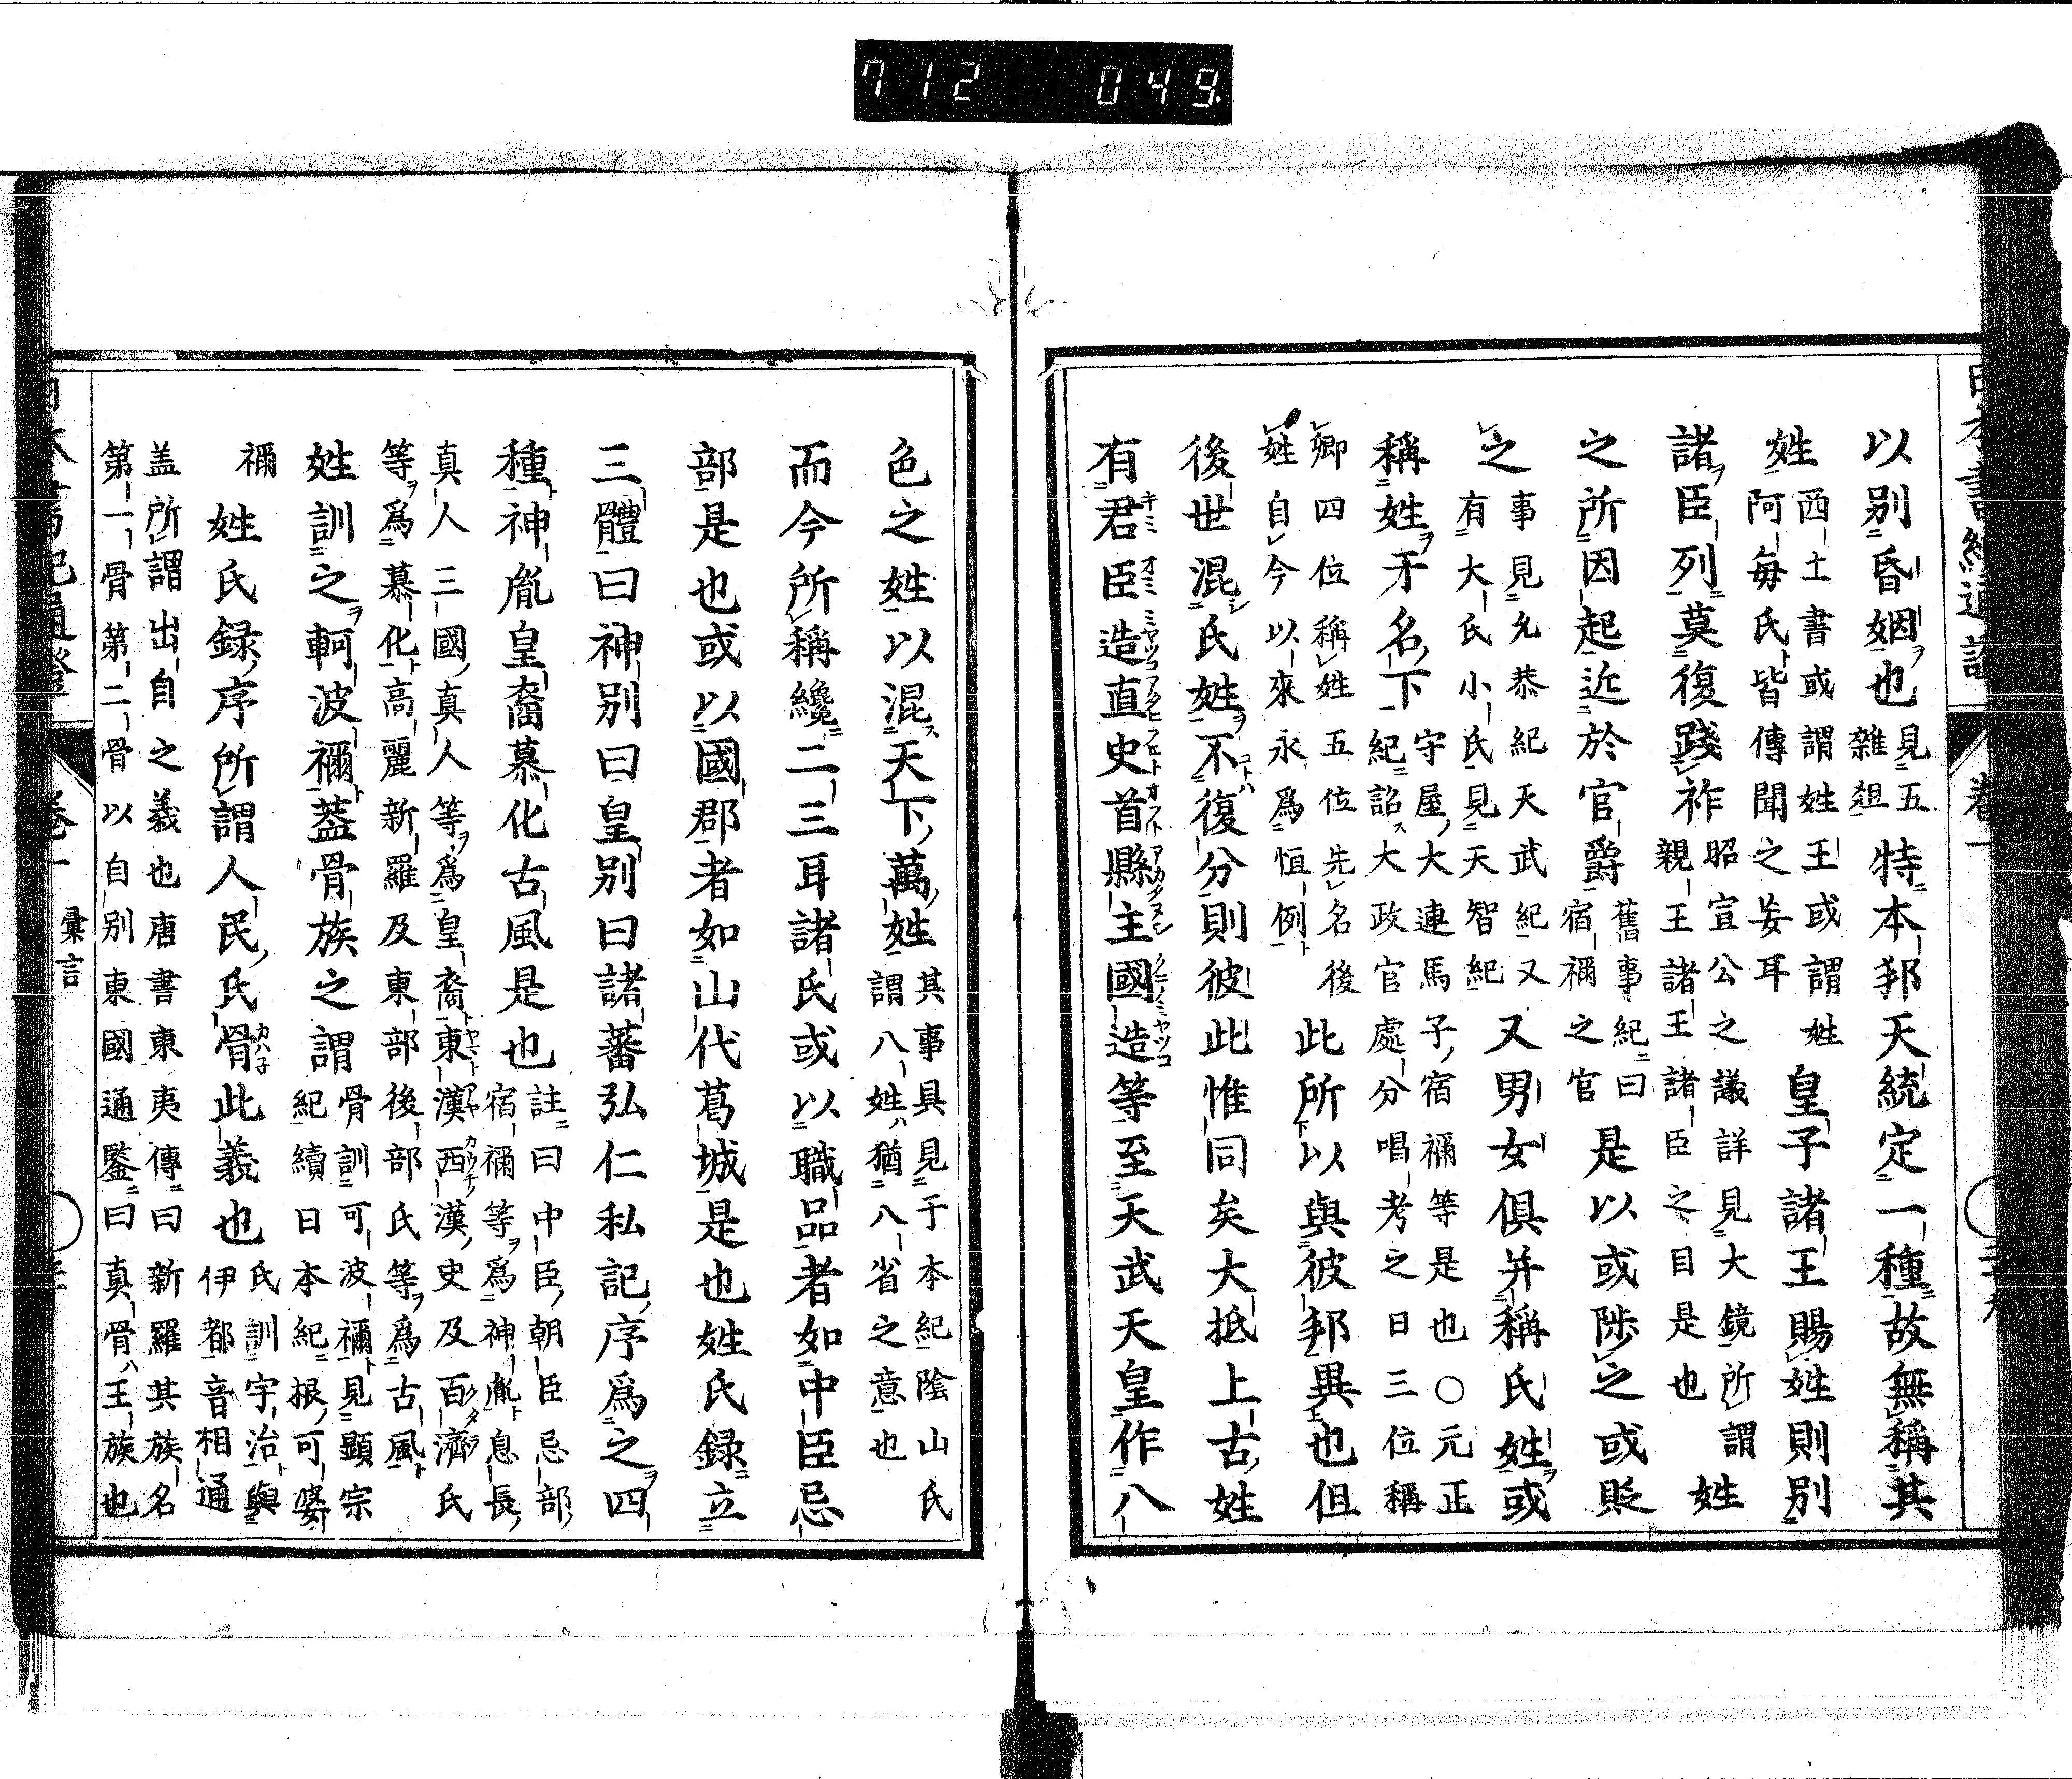 712 049
以别昏姻也見五雜爼特本邦天統定一種故無稱其
姓西土書或謂姓王或謂姓阿毎氏皆傳聞之妄耳皇子諸王賜姓則別
諸臣列莫復踐祚昭宣公之議詳見大鏡所謂親王諸王諸臣之目是也姓
之所因起近於官爵舊事紀曰宿禰之官是以或陟之或貶
之事見允恭紀天武紀又有大氏小氏見天智紀又男女倶并稱氏姓或
稱姓于名下守屋大連馬子宿禰等是也○元正紀詔大政官處分唱考之日三位稱
卿四位稱姓五位先名後姓自今以來永爲恒例此所以與彼邦異也但
後世混氏姓不復分則彼此惟同矣大抵上古姓
有君臣造直史首縣主國造等至天武天皇作八
キミ オミ ミヤツコ アタヒ フヒト オフト アカタヌシ クニノミヤツコ
日本書紀通證 卷一
色之姓以混天下萬姓其事具見于本紀陰山氏謂八姓猶八省之意也
而今所稱纔二三耳諸氏或以職品者如中臣忌
部是也或以國郡者如山代葛城是也姓氏録立
三體曰神别曰皇别曰諸蕃弘仁私記序爲之四
種神胤皇裔慕化古風是也註曰中臣朝臣忌部宿禰等爲神胤息長
真人三國真人等爲皇裔東漢西漢史及百濟氏等爲慕化高麗新羅及東部後部氏等爲古風
姓訓之軻波禰蓋骨族之謂骨訓可波禰見顯宗紀續日本紀根可婆
禰姓氏録序所謂人民氏骨此義也氏訓宇治與伊都音相通
盖所謂出自之義也唐書東夷傳曰新羅其族名第一骨第二骨以自别東國通鑒曰真骨王族也
日本書紀通證 卷一 彙言